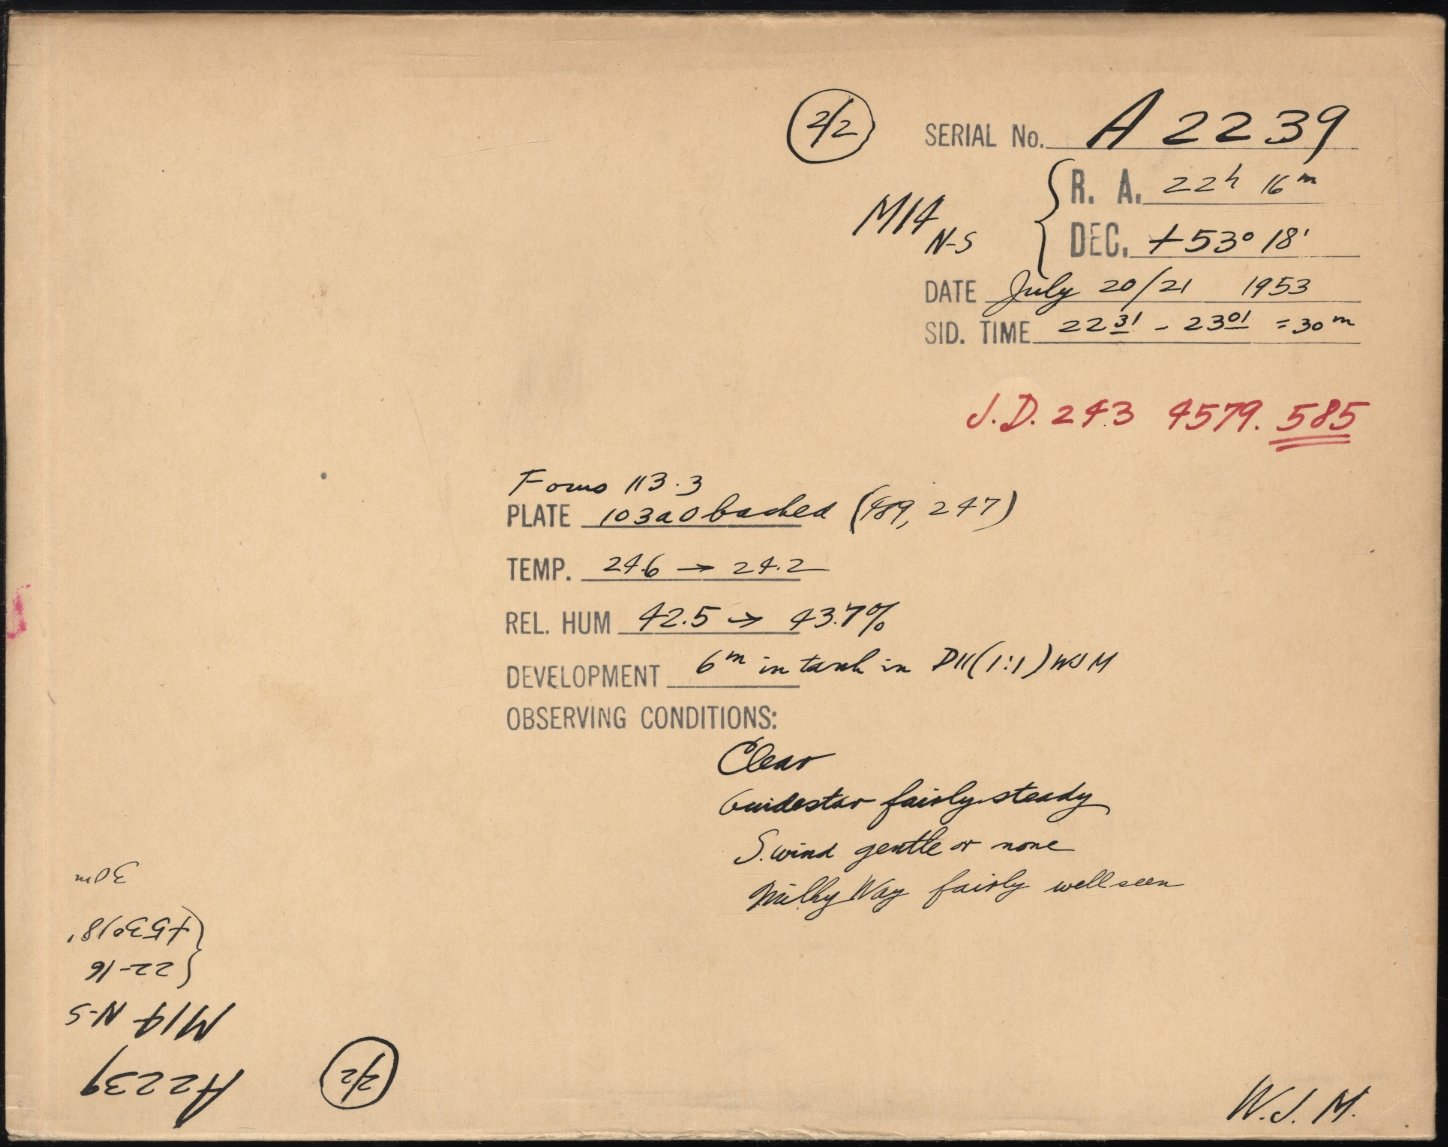 2/2
SERIAL No. A 2239
R. A. 22h 16m
M14 N-S
DEC. +53° 18'
DATE July 20/21 1953
SID. TIME 22 31 - 23 01 = 30m
J.D. 243 4579.585
Focus 113.3
PLATE 103aO backed (989, 247)
TEMP. 24.6 → 24.2
REL. HUM 42.5 → 43.7%
DEVELOPMENT 6m in tank in D11(1:1) WJM
OBSERVING CONDITIONS:
Clear
Guidestar fairly steady
S. wind gentle or none
Milky Way fairly well seen
W.J.M.
2/2
A2239
M14 N-S
22-16
+53°18'
30m